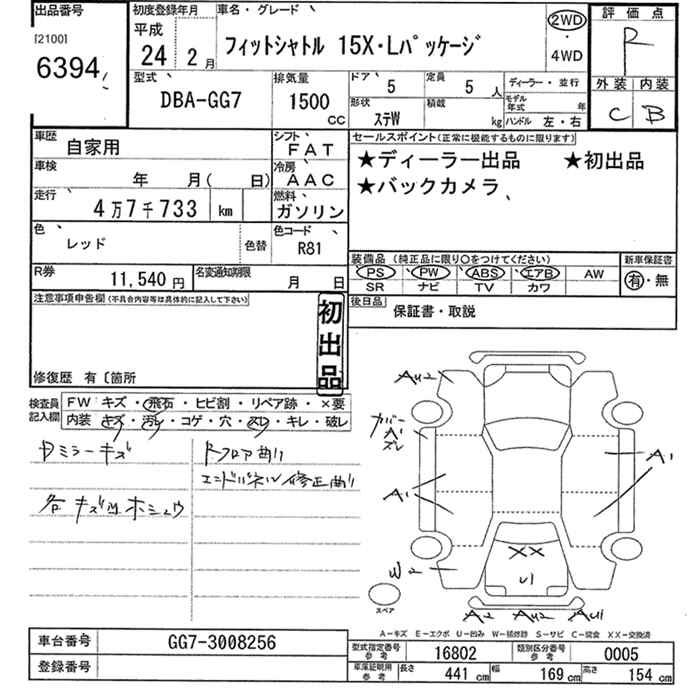 出品番号
[2100]
6394
初度登録年月
平成
24 2月
車名・グレード
フィットシャトル 15X・Lパッケージ
2WD
・
4WD
評価点
R
外装 内装
C B
型式
DBA-GG7
排気量
1500
CC
ドア 5
定員 5 人
形状
ステW
積載
kg
ディーラー・並行
モデル年式 年
ハンドル 左・右
車歴
自家用
シフト
FAT
車検
年 月( 日)
冷房
AAC
走行
4万7千733 km
燃料
ガソリン
色
レッド
色替
色コード
R81
R券
11,540 円
名変通知期限
月 日
セールスポイント(正常に機能するものに限ります)
★ディーラー出品 ★初出品
★バックカメラ
装備品(純正品に限り○をつけてください)
PS PW ABS エアB AW
SR ナビ TV カワ
新車保証書
有・無
後日品
保証書・取説
注意事項申告欄(不具合内容等は具体的に記入して下さい)
初出品
修復歴 有〔箇所
検査員記入欄
FW キズ・飛石・ヒビ割・リペア跡・×要
内装 キズ・汚レ・コゲ・穴・スレ・キレ・破レ
Dミラーキズ
Rフロア曲り
エンドパネル修正曲り
各キズ凹ホシュウ
AU2
カバー
A1
ズレ
A1
A1
W2
XX
U1
A2 AU2 AU1
スペア
A-キズ E-エクボ U-凹み W-補修跡 S-サビ C-腐食 XX-交換済
車台番号
GG7-3008256
登録番号
型式指定番号
参考
16802
類別区分番号
参考
0005
車庫証明用
参考
長さ 441 cm
幅 169 cm
高さ 154 cm